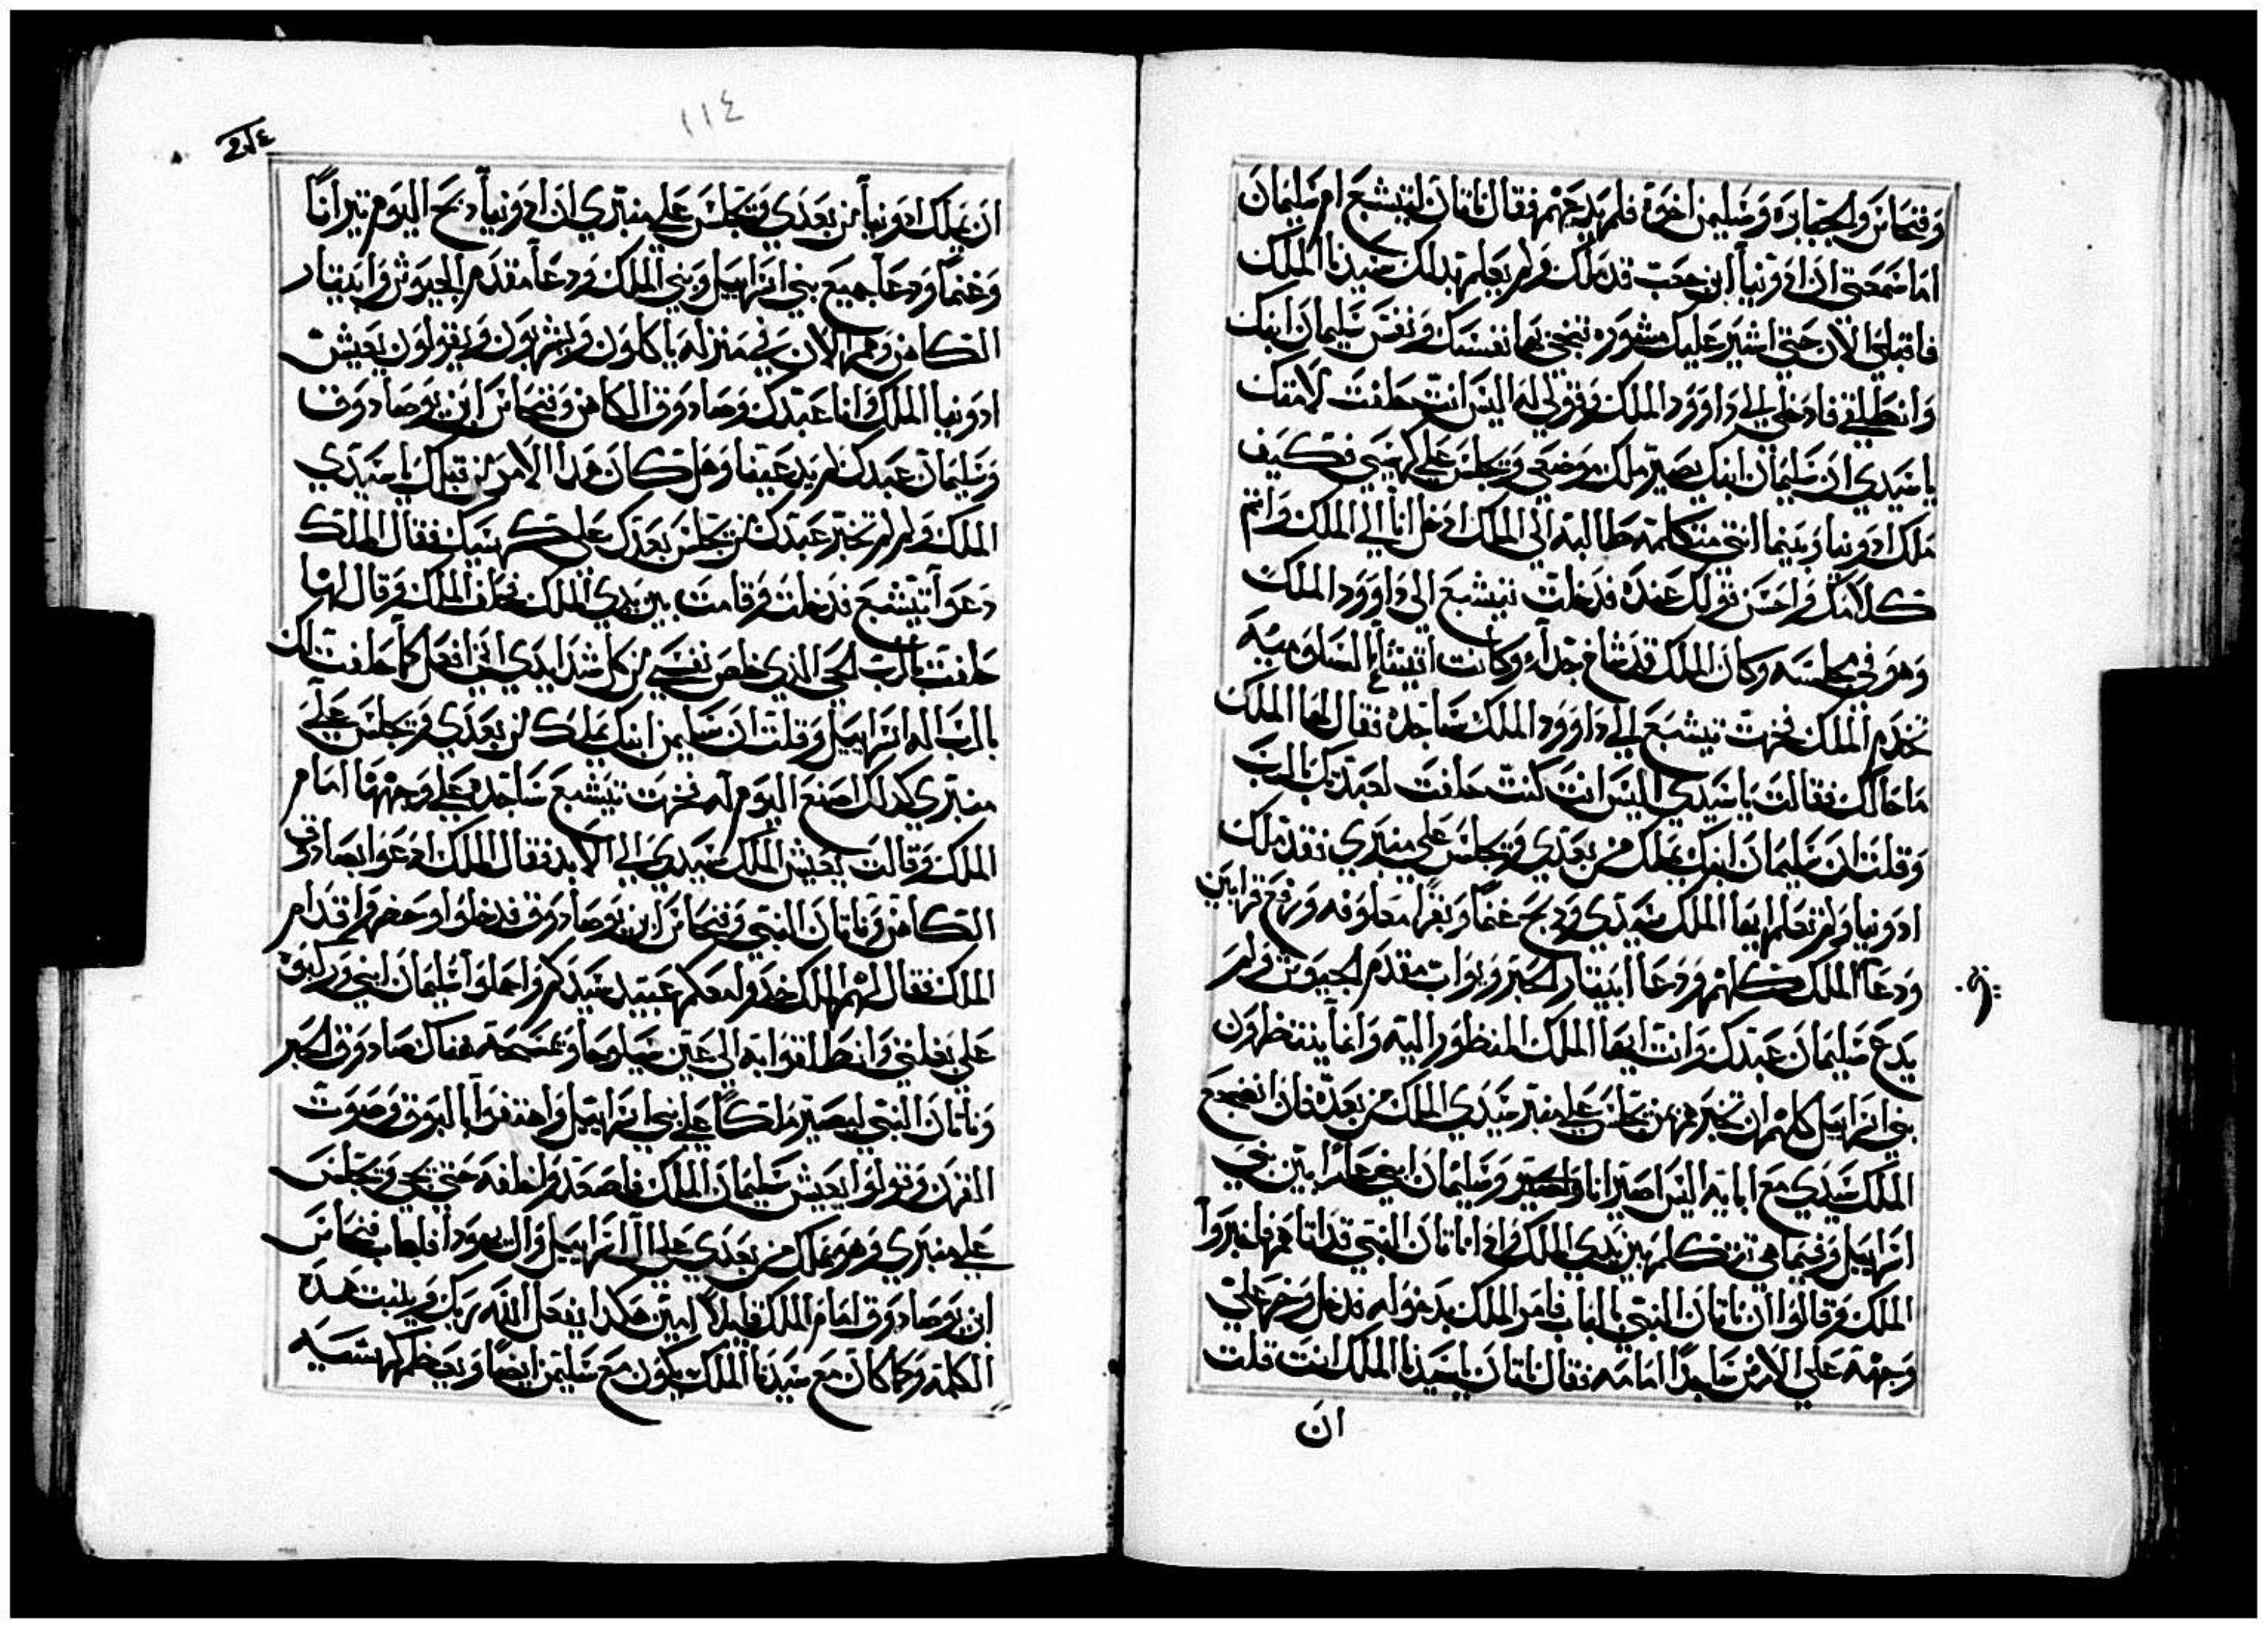 وفنحاس والجبابره وسليمن اخوة فلم يدعهم فقال ناتان لتيشبع ام سليمان
اما سمعتي ان ادونيا ابن حجت قد ملك ولم يعلم بدلك سيدنا الملك
فاقبلي الان حتي اشير عليك مشوره تنجي بها نفسك ونفس سليمان ابنك
وانطلقي فادخلي الي داوود الملك وقولي له اليس انت حلفت لامتك
يا سيدي ان سليمان ابنك يصير ملك موضعي ويجلس علي كرسيي فكيف
ملك ادونيا وبينما انتي متكلمة طالبة الي الملك ادخل انا الي الملك واتم
كلامك واحسن قولك عنده فدخلت تيشبع الي داوود الملك
وهو في مجلسه وكان الملك قد شاخ جداً وكانت انيشاع السلوميه
تخدم الملك فخرت تيشبع الي داوود الملك ساجده فقال لها الملك
ما حالك فقالت يا سيدي اليس انت كنت حلفت لعبدتك بالرب
وقلت ان سليمان ابنك يملك من بعدي ويجلس علي منبري فقد ملك
ادونيا ولم تعلم ايها الملك سيدي ودبح غنماً وبقراً معلوفه ورفع قرابين
ودعا الملك كلهم ودعا ابيتار الحبر ويواب مقدم الجيوش ولم
يدع سليمان عبدك وانت ايها الملك المنظور اليه وانما ينتظرون
بني اسراييل كلهم ان تخبرهم من يجلس علي منبر سيدي الملك من بعده فان انضجع
الملك سيدي مع ابايه اليس اصير انا وسليمان ابني بين بني
اسراييل وفيما هي تتكلم بين يدي الملك واذا ناتان النبي قد اتاهم فاخبروا
الملك وقالوا ان ناتان النبي بالباب فامر الملك بدخوله فدخل وخر علي
وجهه علي الارض ساجداً امامه فقال ناتان يا سيدنا الملك انت قلت
ان
١١٤
ان يملك ادونيا من بعدي ويجلس علي منبري ان ادونيا دبح اليوم تيراناً
وغنماً ودعا جميع بني اسراييل وبني الملك ودعا مقدم الجيوش وابيتار
الكاهن وهم الان في منزله ياكلون ويشربون ويقولون يعيش
ادونيا الملك وانا عبدك وصادوق الكاهن وفنحاس ابن يوصادوق
وسليمان عبدك لم يدعينا وهل كان هدا الامر من قبلك يا سيدي
الملك ولم تخبر عبدك من يجلس بعدك علي كرسيك فقال الملك
دعوا تيشبع فدخلت وقامت بين يدي الملك فحلف الملك وقال لها
حلفت بالرب الحي الذي خلص نفسي من كل شدايدي اني افعل كما حلفت لك
بالرب اله اسراييل وقلت ان سليمن ابنك يملك من بعدي ويجلس علي
منبري كدلك اصنع اليوم له فخرت تيشبع ساجده علي وجهها امام
الملك وقالت يعيش الملك سيدي الي الابد فقال الملك ادعوا بصادوق
الكاهن وناتان النبي وفنحاس ابن يوصادوق فدخلوا وحضروا قدام
الملك فقال لهم الملك خدوا معكم عبيد سيدكم واحملوا سليمان ابني وركبوه
علي بغلتي وانطلقوا به الي عين سيلوحا ويمسحه هناك صادوق الحبر
وناتان النبي ليصير ملكاً علي بني اسراييل واهتفوا بالبوق وصوت
القرن وقولوا يعيش سليمان الملك فاصعدوا خلفه حتي يجي ويجلس
علي منبري وهو يملك من بعدي علي ال اسراييل وال يهودا فاجاب فنحاس
ابن يوصادوق امام الملك قايلاً امين هكدا يفعل الله ربك ويثبت هده
الكلمه وكما كان مع سيدنا الملك يكون مع سليمن ايضاً ويعظم كرسيه